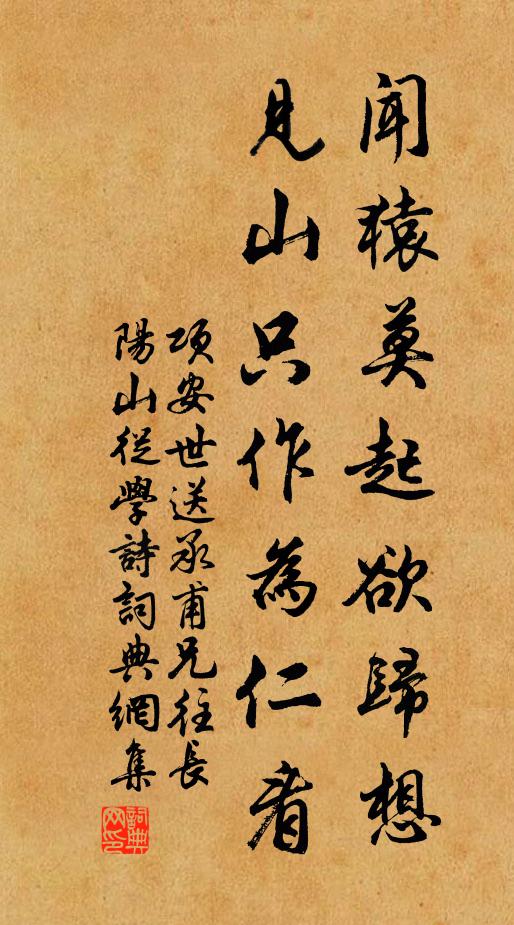 聞猿莫起欲歸想
見山只作為仁者
項安世送承甫兄往長
陽山從學詩詞典網集
詞典
网印